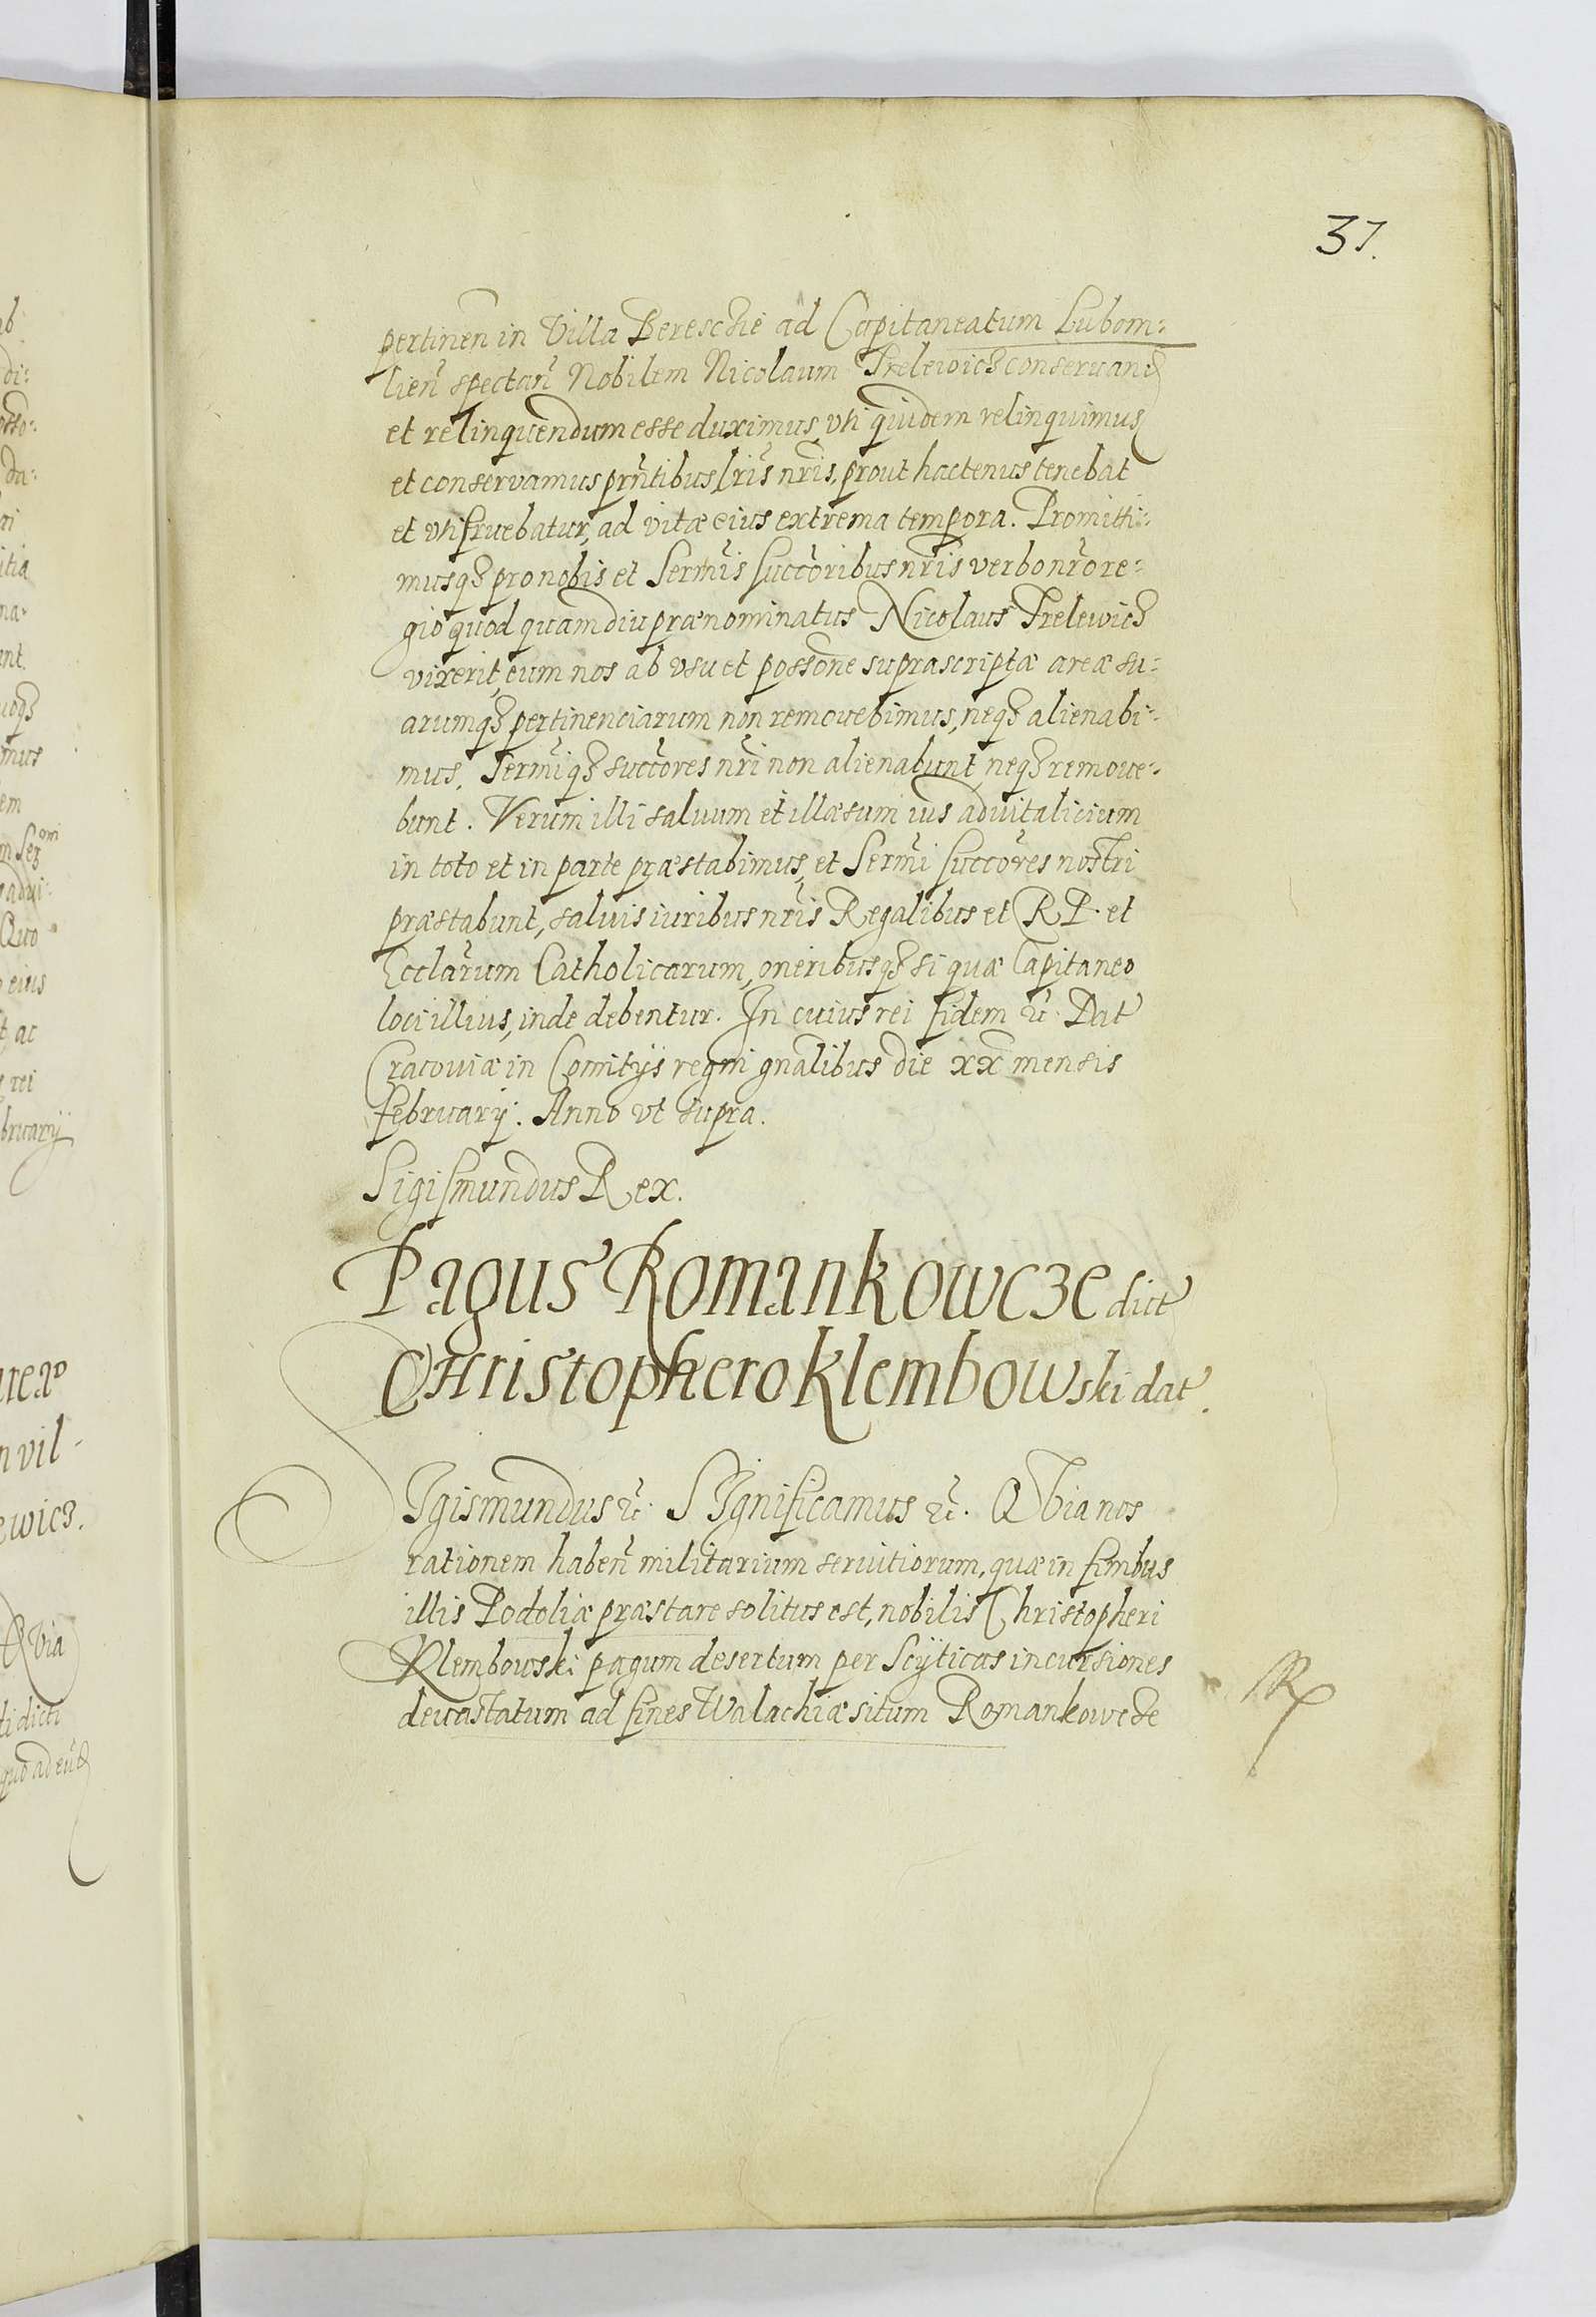 37.
pertinen̄ in Villa Bereschie ad Capitaneatum Lubom:
lien̄ spectan̄ Nobilem Nicolaum Trelewicz conseruand
et relinquendum esse duximus, vti quidem relinquimus
et conservamus prn̄tibus, lr̄is nr̄is, prout hactenus tenebat
et vtifruebatur, ad vitæ eius extrema tempora. Promitti:
musqȝ pro nobis et Serm̄is succ̄oribus nr̄is verbo nr̄o re:
gio quod quamdiu prænominatus Nicolaus Trelewicz
vixerit, eum nos ab vsu et posson̄e suprascriptæ areæ su:
arumqȝ pertinenciarum non remouebimus, neqȝ alienabi:
mus, Serm̄iqȝ succ̄ores nr̄i non alienabunt, neqȝ remoue:
bunt. Verum illi saluum et illæsum ius aduitalicium
in toto et in parte præstabimus, et Serm̄i succ̄ores nostri
præstabunt, saluis iuribus nr̄is Regalibus et R P. et
Eccl̄arum Catholicarum, oneribusqȝ si quæ Capitaneo
loci illius, inde debentur. In cuius rei fidem ꝛc̄. Dat
Cracouiæ in Comitijs regni gn̄alibus die xx mensis
februarij. Anno vt supra.
Sigismundus Rex.
Pagus Romankowcze dict
Christophero Klembowski dat.
SIgismundus ꝛc̄. SIgnificamus ꝛc̄. QVia nos
rationem haben̄ militarium seruitiorum, quæ in finibus
illis Podoliæ præstare solitus est, nobilis Christopheri
Klembowski pagum desertum per Scÿticas incursiones
deuastatum ad fines Walachiæ situm Romankowcze